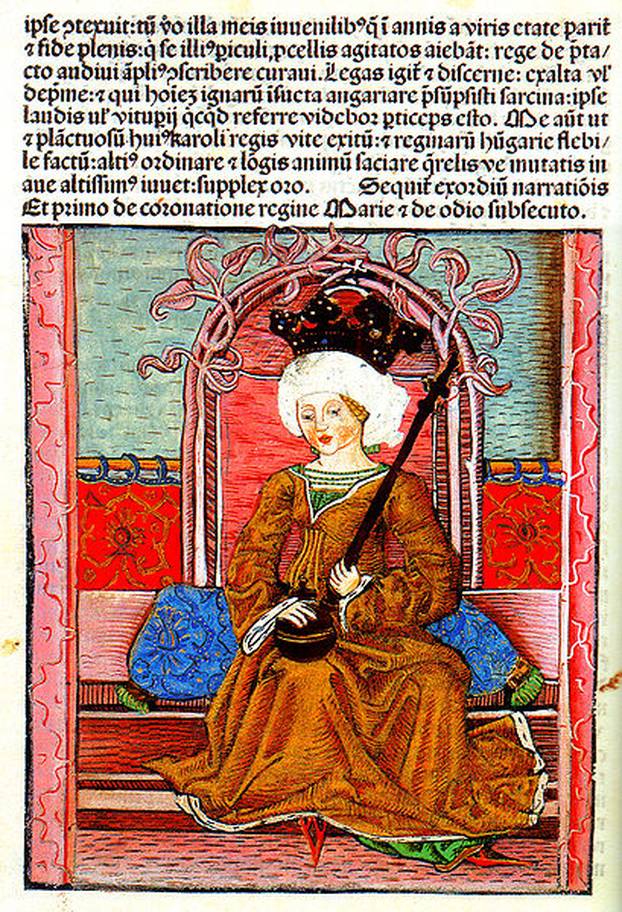 ipse ꝯtexuit: tū ꝟo illa meis iuuenilibꝰ q̄ ī annis a viris etate parit᷑
⁊ fide plenis: q̇ se illiꝰ ꝑiculi, ꝓcellis agitatos aiebāt: rege de p̄ta/
cto audiui āpliꝰ ꝯscribere curaui. Legas igit᷑ ⁊ discerne: exalta vĺ
dep̄me: ⁊ qui hoīeꝫ ignarū īsueta angariare p̄sūpsisti sarcina: ipse
laudis uĺ vituꝑij qcq̇d referre videbor ꝑticeps esto. Me aūt ut
⁊ plāctuosū huiꝰ karoli regis vite exitū: ⁊ reginarū hūgarie flebi/
le factū: altiꝰ ordinare ⁊ lōgis animū saciare q̄relis ve mutatis in
aue altissimꝰ iuuet: supplex oro. Sequit᷑ exordiū narratiōis
Et primo de coronatione regine Marie ⁊ de odio subsecuto.